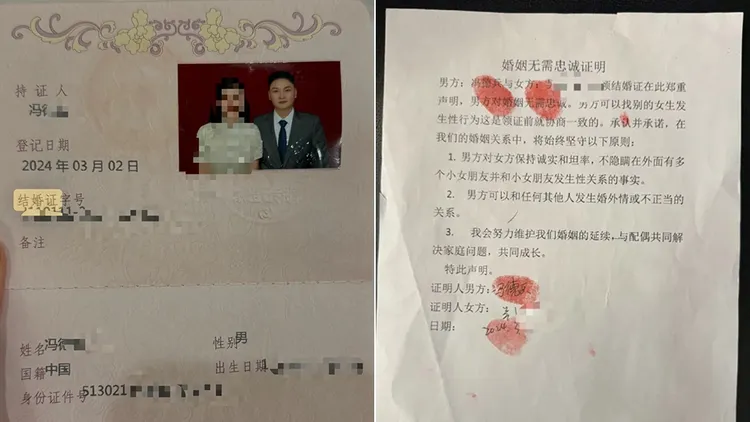 持 证 人
冯
登记日期
2024 年 03 月 02 日
结婚证字号
备注
姓名 冯 性别 男
国籍 中国 出生日期 1
身份证件号 513021
婚姻无需忠诚证明
男方：冯德兵与女方： 领结婚证在此郑重
声明，男方对婚姻无需忠诚。男方可以找别的女生发
生性行为这是领证前就协商一致的。承认并承诺，在
我们的婚姻关系中，将始终坚守以下原则：
1. 男方对女方保持诚实和坦率，不隐瞒在外面有多
个小女朋友并和小女朋友发生性关系的事实。
2. 男方可以和任何其他人发生婚外情或不正当的
关系。
3. 我会努力维护我们婚姻的延续，与配偶共同解
决家庭问题，共同成长。
特此声明。
证明人男方：冯德
证明人女方：
日期： 2024.3